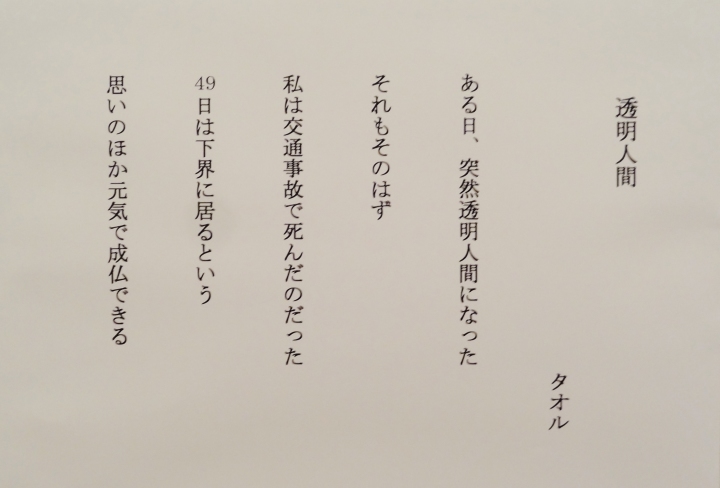 透明人間
タオル
ある日、突然透明人間になった
それもそのはず
私は交通事故で死んだのだった
49日は下界に居るという
思いのほか元気で成仏できる